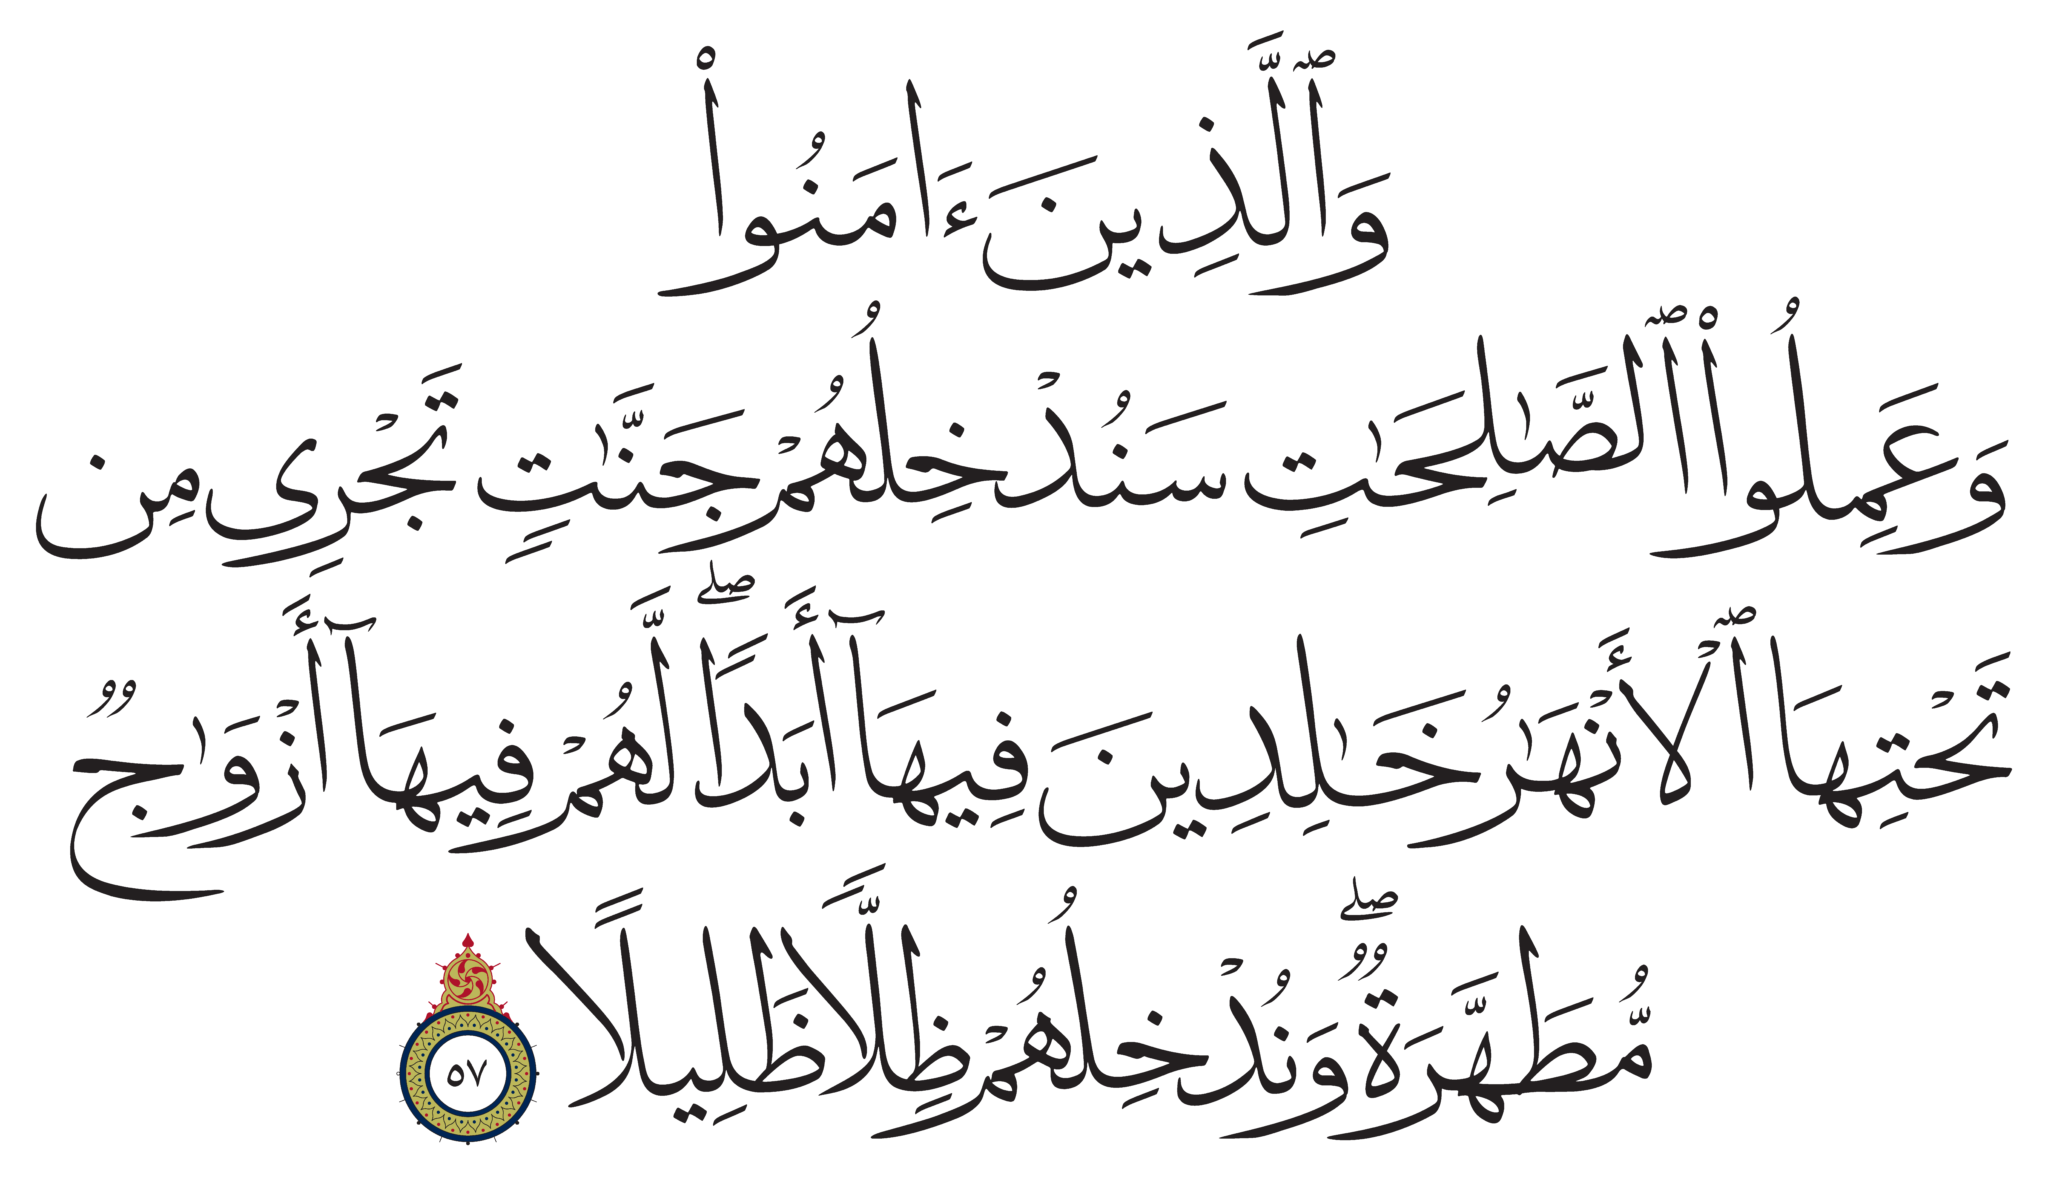 وَٱلَّذِينَ ءَامَنُوا۟
وَعَمِلُوا۟ ٱلصَّـٰلِحَـٰتِ سَنُدْخِلُهُمْ جَنَّـٰتٍ تَجْرِى مِن
تَحْتِهَا ٱلْأَنْهَـٰرُ خَـٰلِدِينَ فِيهَآ أَبَدًا ۖ لَّهُمْ فِيهَآ أَزْوَٰجٌ
مُّطَهَّرَةٌ ۖ وَنُدْخِلُهُمْ ظِلًّا ظَلِيلًا ٥٧